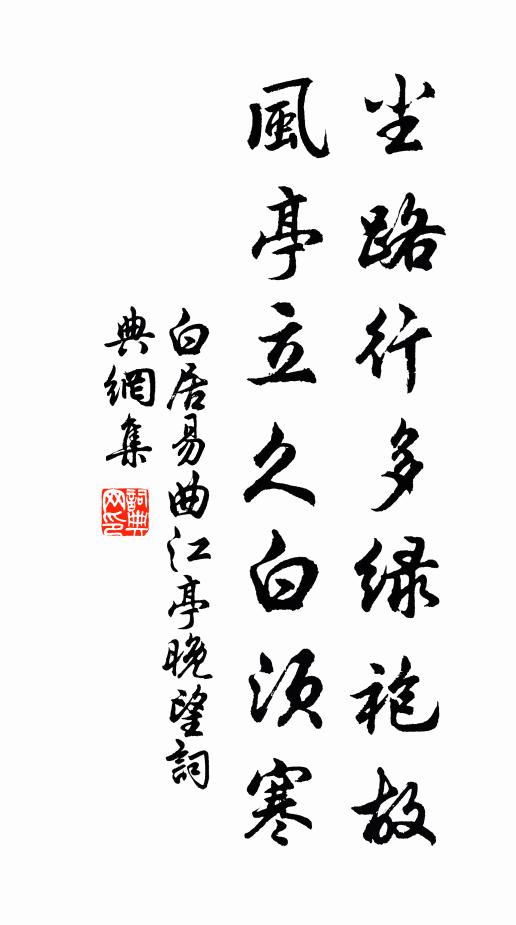 尘路行多绿袍故
風亭立久白须寒
白居易曲江亭晚望詞
典網集
詞典
网印